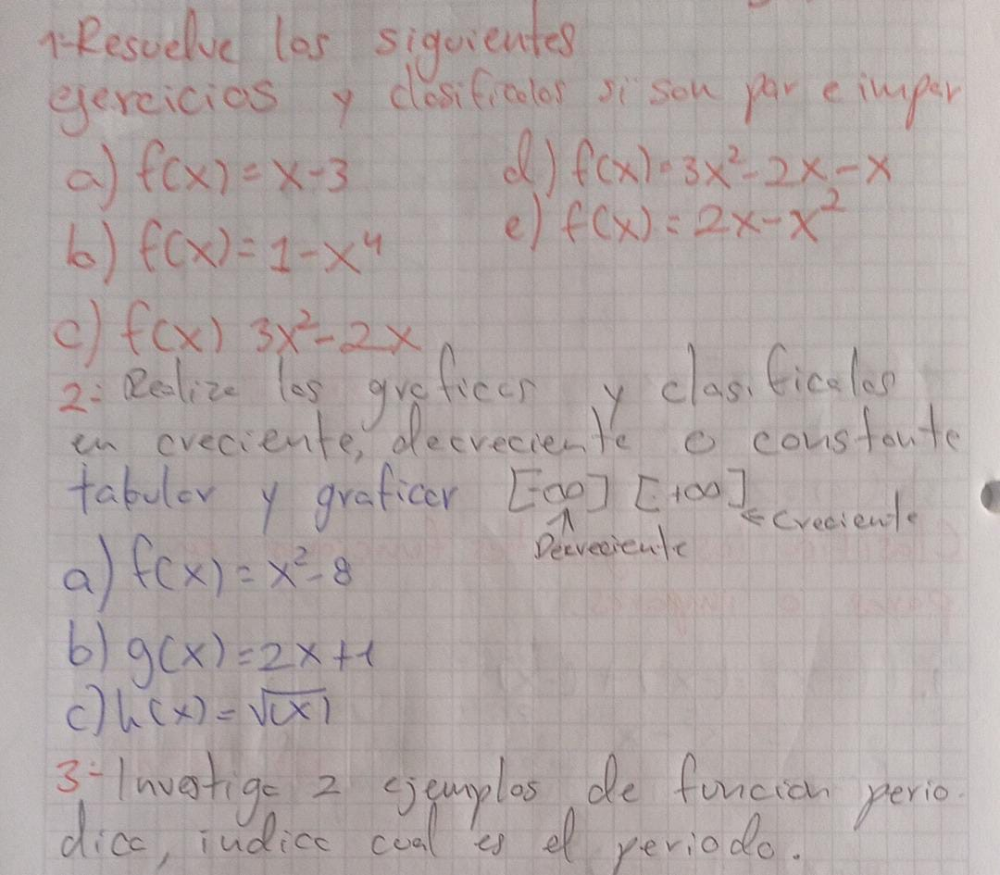 1-Resuelve los siguientes
ejercicios y clasificalos si son par e impar
a) f(x)=x-3
d) f(x)=3x²-2x-x
b) f(x)=1-x⁴
e) f(x)=2x-x²
c) f(x) 3x²-2x
2- Realize las graficas y clasificalas
en creciente, decreciente o constante
tabular y graficar [-∞] [+∞]
↑ ← Creciente
Decreciente
a) f(x)=x²-8
b) g(x)=2x+1
c) h(x)=√(x)
3- Investiga 2 ejemplos de funcion perio-
dica, indica cual es el periodo.